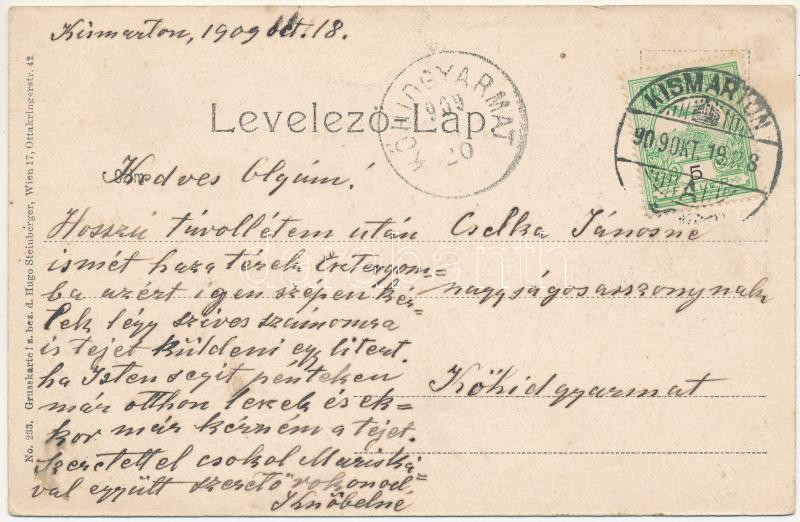 Kismarton, 1909 okt. 18.
KŐHIDGYARMAT
909
20
KISMARTON
909 OKT. 19
5
A
Levelező-Lap.
Kedves Olgám!
Hosszú távollétem után
ismét haza térek Esztergom=
ba azért igen szépen kér=
lek légy szives számomra
is tejet küldeni egy litert.
ha Isten segit pénteken
már otthon lezek és ek=
kor már kérném a tejet.
Szeretettel csokol Mariská=
val együtt szerető rokonod
Knőbelné
Cselka Jánosné
nagyságos asszonynak
Kőhidgyarmat
No. 233. Grusskarte! z. bez. d. Hugo Steinberger, Wien 17, Ottakringerstr. 42.
darabanth